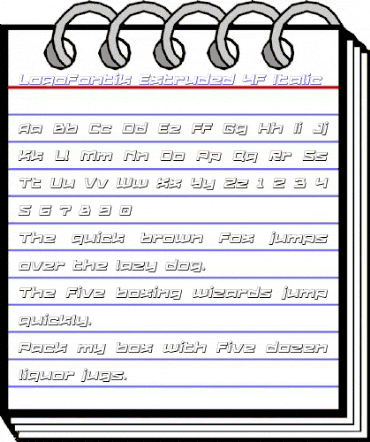 LogoFontik Extruded 4F Italic
Aa Bb Cc Dd Ee Ff Gg Hh Ii Jj
Kk Ll Mm Nn Oo Pp Qq Rr Ss
Tt Uu Vv Ww Xx Yy Zz 1 2 3 4
5 6 7 8 9 0
The quick brown fox jumps
over the lazy dog.
The five boxing wizards jump
quickly.
Pack my box with five dozen
liquor jugs.